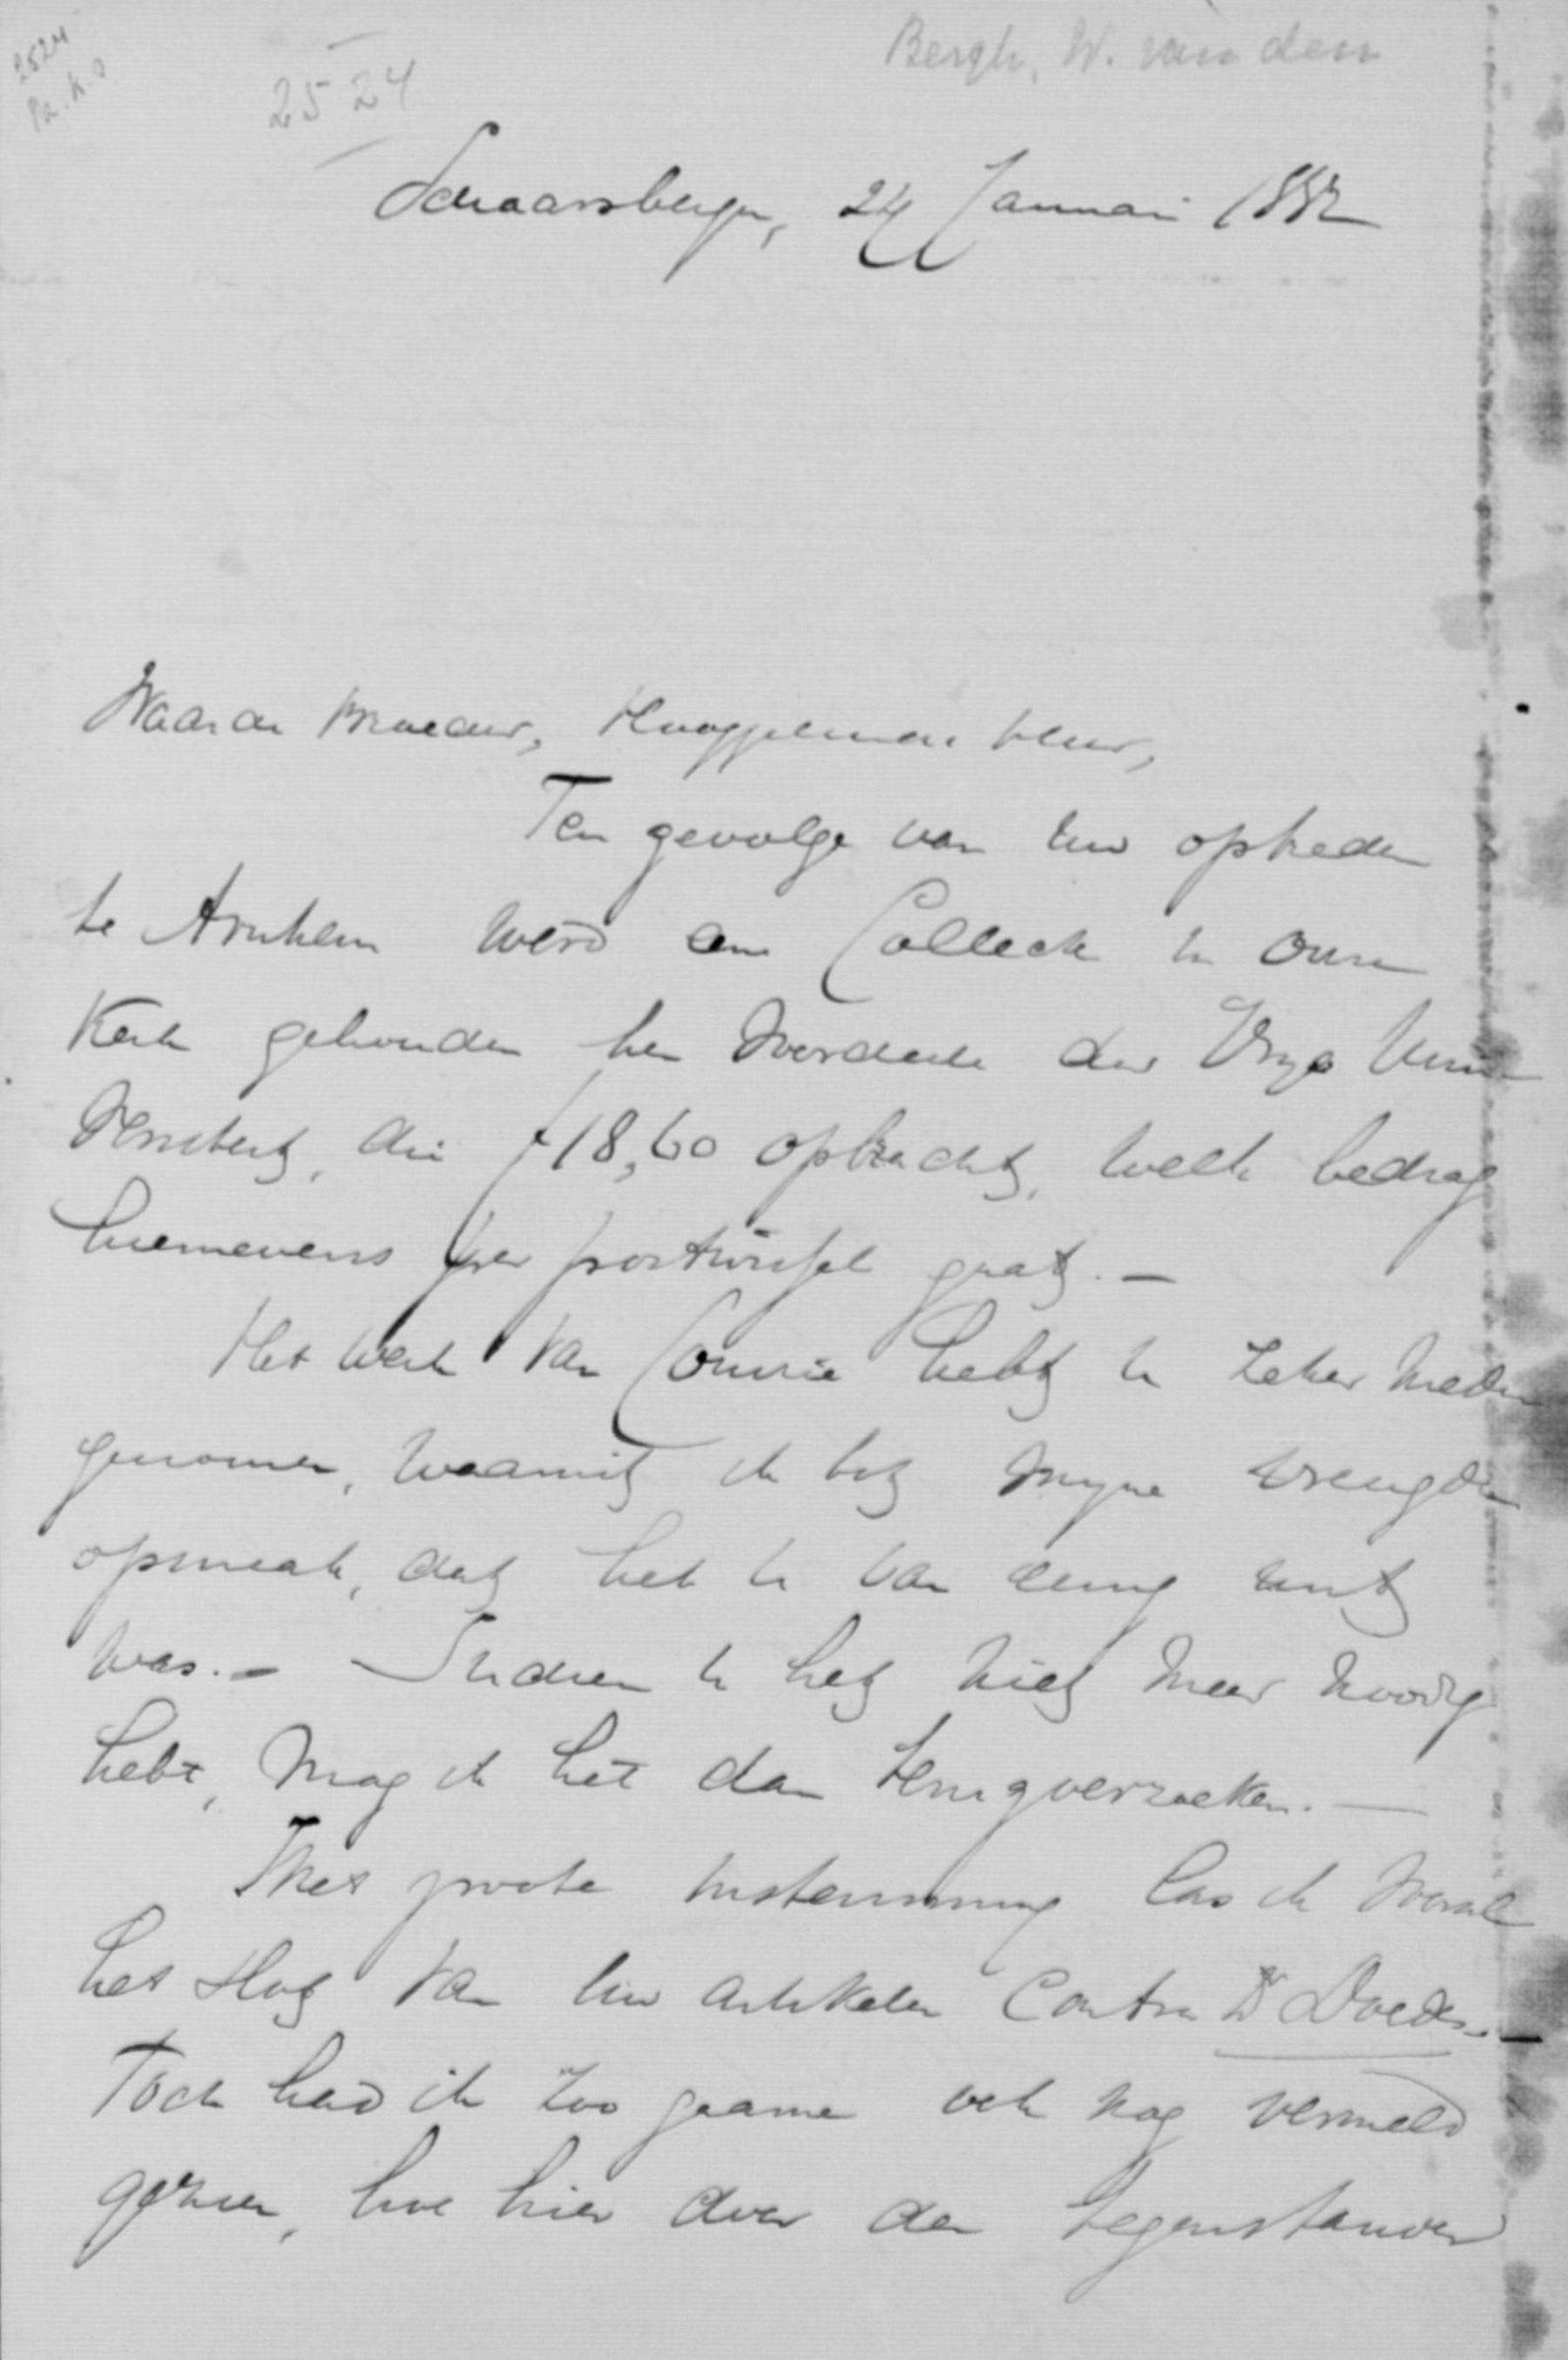 2524
Pa. K. O
2524
Bergh, W. van den
Schaarsbergen, 24 Januari 1882
Waarde Broeder, Hooggeleerde Heer,
Ten gevolge van uw optreden
te Arnhem werd een Collecte in onze
Kerk gehouden ten voordeele der Vrije Uni-
versiteit, die f 18,60 opbracht, welk bedrag
hiernevens per postwissel gaat. —
Het werk van Comrie hebt U zeker mede
genomen, waaruit ik tot mijne vreugde
opmaak, dat het U van eenig nut
was. — Indien U het niet meer noodig
hebt, mag ik het dan terugverzoeken. —
Met groote instemming las ik vooral
het slot van uw artikelen contra Dr Doedes. —
Toch had ik zoo gaarne ook nog vermeld
gezien, hoe hier door den tegenstander